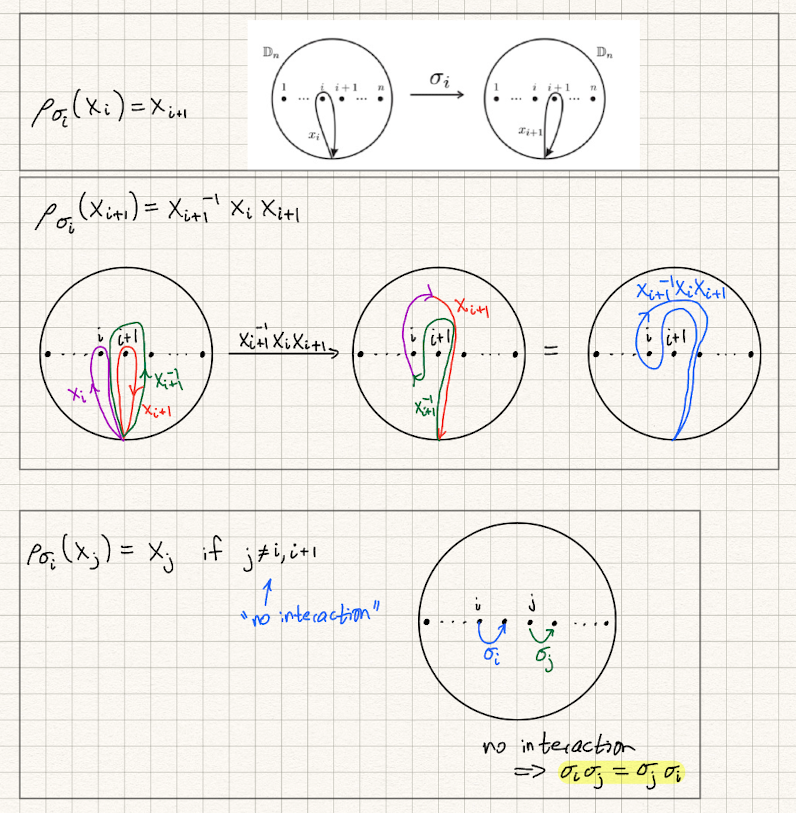 ρ_σᵢ(xᵢ) = xᵢ₊₁
𝔻ₙ
1 ... i i+1 ... n
xᵢ
σᵢ
𝔻ₙ
1 ... i i+1 ... n
xᵢ₊₁
ρ_σᵢ(xᵢ₊₁) = xᵢ₊₁⁻¹ xᵢ xᵢ₊₁
i i+1
xᵢ xᵢ₊₁⁻¹
xᵢ₊₁
xᵢ₊₁⁻¹xᵢxᵢ₊₁
xᵢ₊₁
i i+1
xᵢ₊₁⁻¹
=
xᵢ₊₁⁻¹xᵢxᵢ₊₁
i i+1
ρσᵢ(xⱼ) = xⱼ if j≠i,i+1
"no interaction"
i j
σᵢ σⱼ
no interaction
=> σᵢσⱼ = σⱼσᵢ